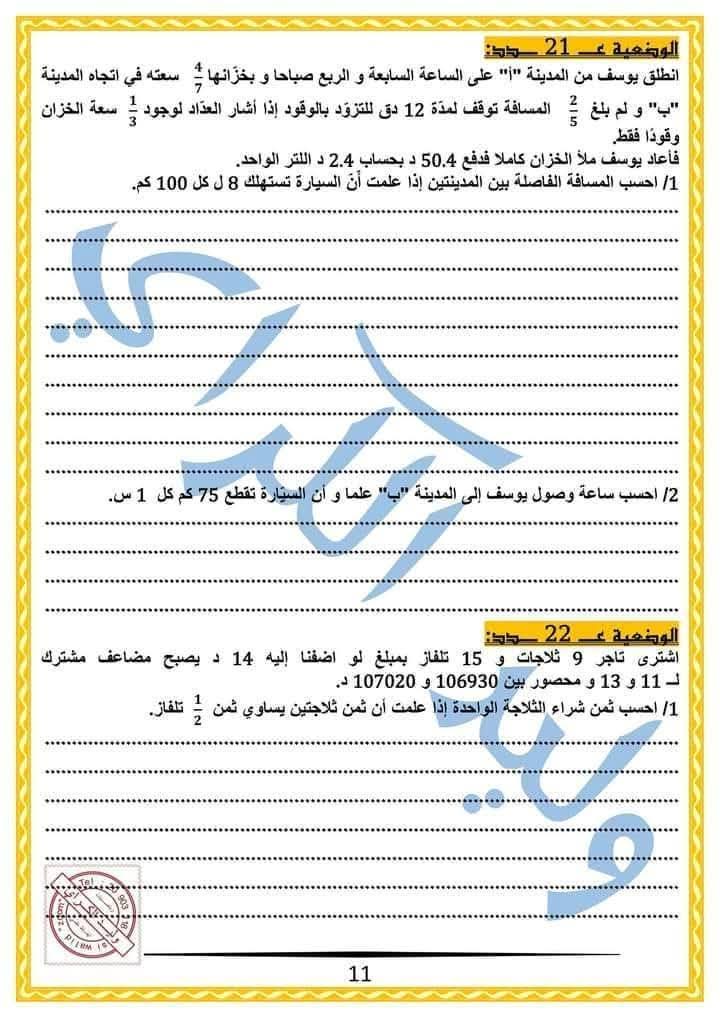 الوضعية عـــ 21 ـــدد:
انطلق يوسف من المدينة "أ" على الساعة السابعة و الربع صباحا و بخزّانها 4/7 سعته في اتجاه المدينة
"ب" و لم بلغ 2/5 المسافة توقف لمدّة 12 دق للتزوّد بالوقود إذا أشار العدّاد لوجود 1/3 سعة الخزان
وقودًا فقط.
فأعاد يوسف ملأ الخزان كاملا فدفع 50.4 د بحساب 2.4 د اللتر الواحد.
1/ احسب المسافة الفاصلة بين المدينتين إذا علمت أنّ السيارة تستهلك 8 ل كل 100 كم.
2/ احسب ساعة وصول يوسف إلى المدينة "ب" علما و أن السيّارة تقطع 75 كم كل 1 س.
الوضعية عـــ 22 ـــدد:
اشترى تاجر 9 ثلاجات و 15 تلفاز بمبلغ لو اضفنا إليه 14 د يصبح مضاعف مشترك
لــ 11 و 13 و محصور بين 106930 و 107020 د.
1/ احسب ثمن شراء الثلاجة الواحدة إذا علمت أن ثمن ثلاجتين يساوي ثمن 1/2 تلفاز.
الكراي
وليد
Tel : 20 903 118
11